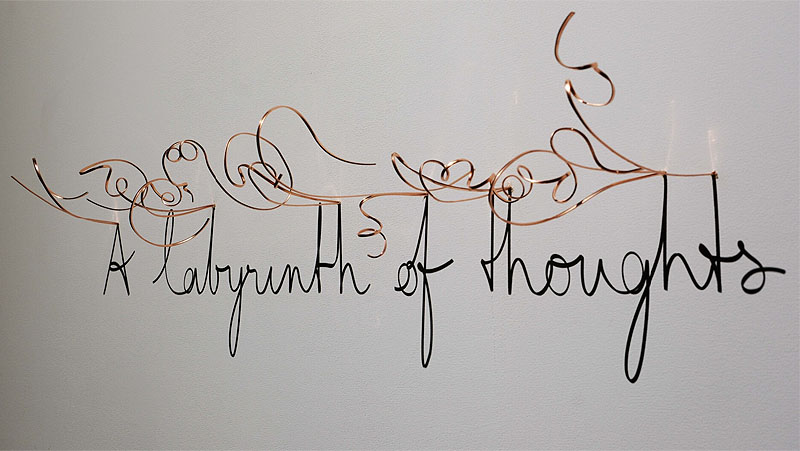 A labyrinth of thoughts